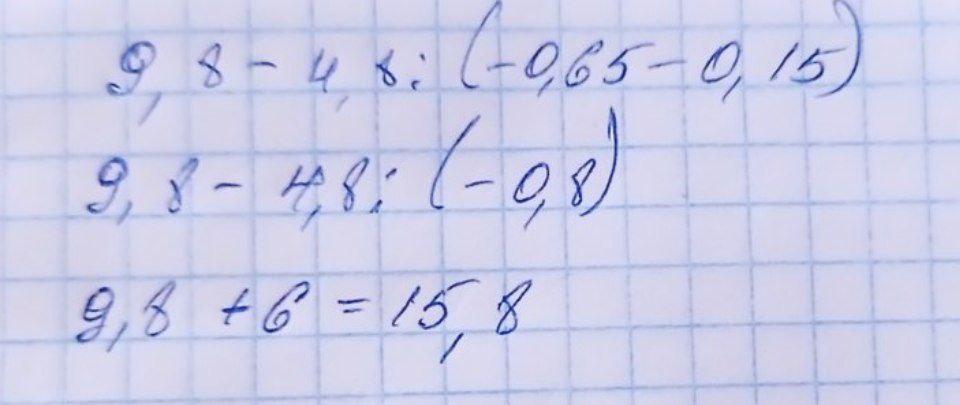 9,8 - 4,8 : (-0,65 - 0,15)
9,8 - 4,8 : (-0,8)
9,8 + 6 = 15,8